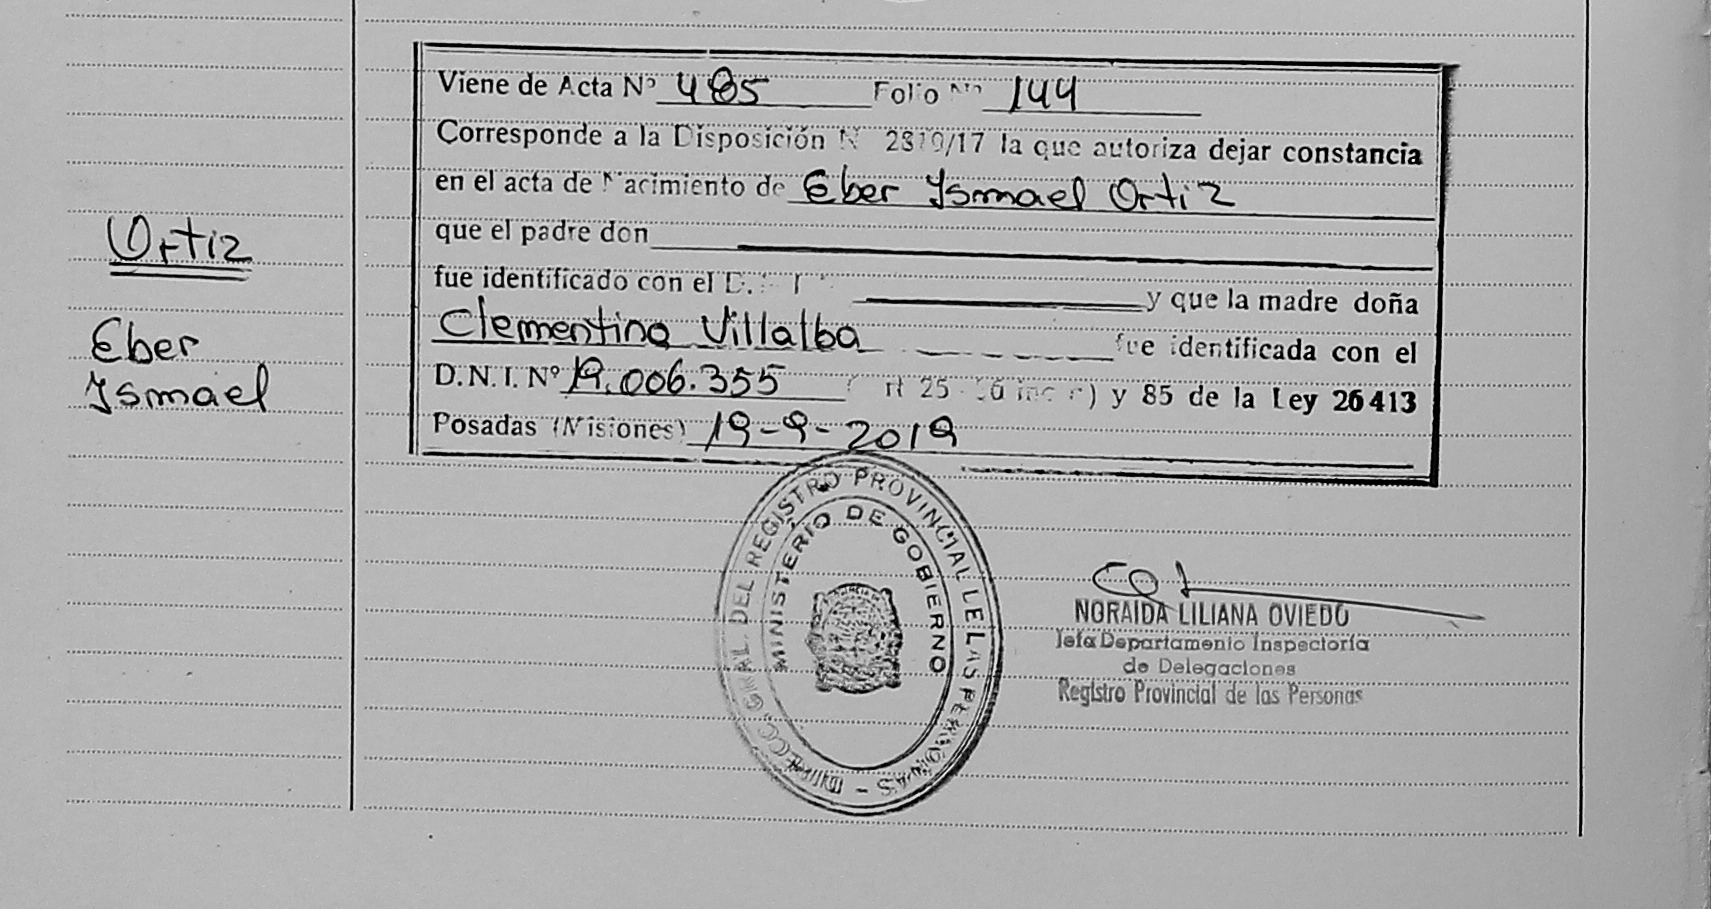 Ortiz
Eber
Ysmael
Viene de Acta Nº 485 Folio Nº 144
Corresponde a la Disposición N 2810/17 la que autoriza dejar constancia
en el acta de Nacimiento de Eber Ysmael Ortiz
que el padre don
fue identificado con el D.
y que la madre doña
Clementina Villalba fue identificada con el
D.N.I. Nº 19.006.355 25 y 85 de la Ley 26413
Posadas (Misiones) 19-9-2019
DIRECC. GRAL. DEL REGISTRO PROVINCIAL DE LAS PERSONAS -
MINISTERIO DE GOBIERNO
NORAIDA LILIANA OVIEDO
Jefa Departamento Inspectoría
de Delegaciones
Registro Provincial de las Personas